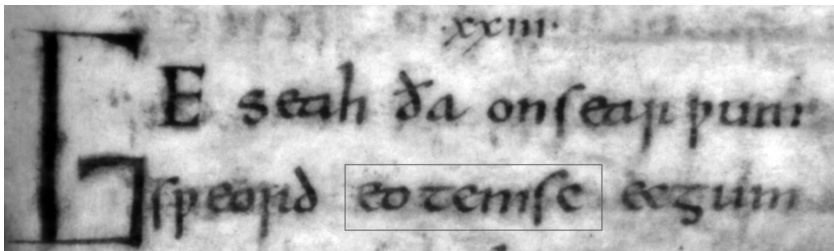 ·xxiii·
GE seah ða onsearƿum
sƿeord eotenisc ecgum